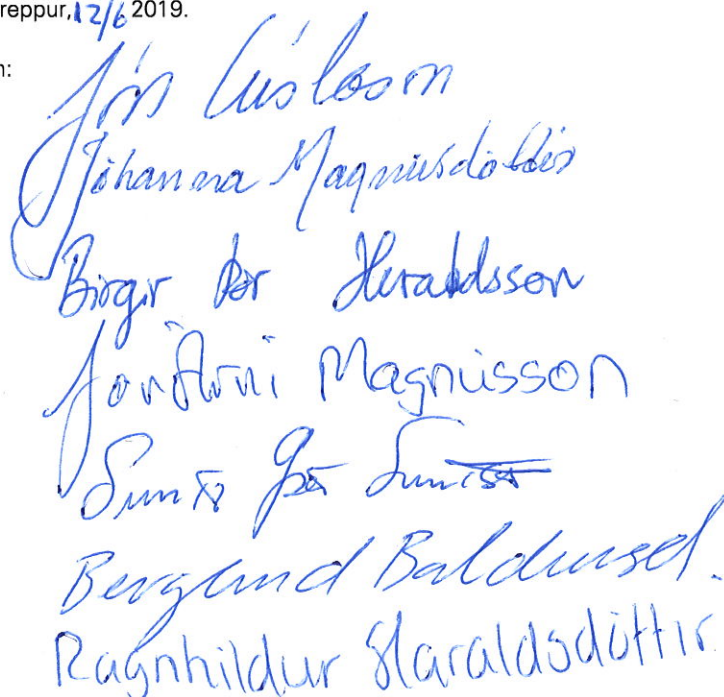 reppur, 12/6 2019.
n:
Jón Gíslason
Jóhanna Magnúsdóttir
Birgir Þór Haraldsson
Jón Árni Magnússon
Berglind Baldursd.
Ragnhildur Haraldsdóttir